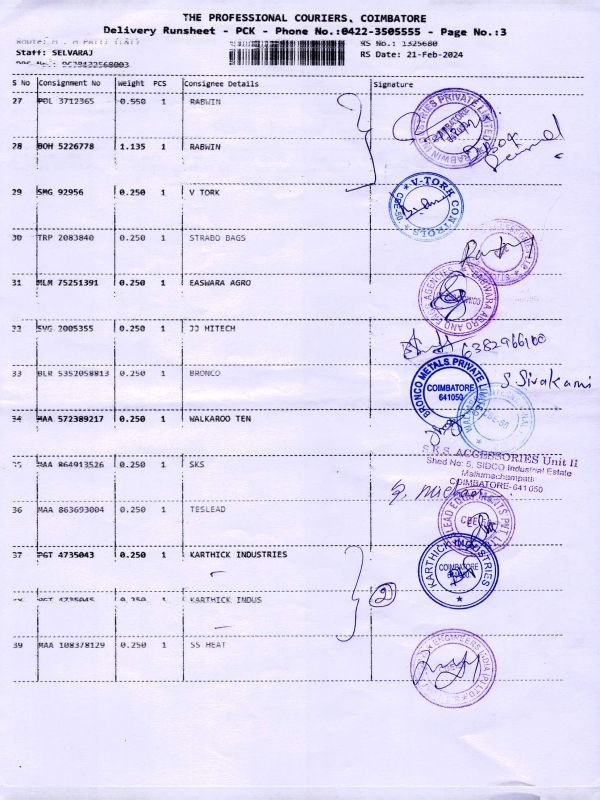 THE PROFESSIONAL COURIERS, COIMBATORE
Delivery Runsheet - PCK - Phone No.:0422-3505555 - Page No.:3
RS No.: 1325680
Staff: SELVARAJ
RS Date: 21-Feb-2024
S No Consignment No Weight PCS Consignee Details Signature
27 POL 3712365 0.550 1 RABWIN
28 BOH 5226778 1.135 1 RABWIN
29 SMG 92956 0.250 1 V TORK
V-TORK CONTROLS
CBE-50.
30 TRP 2083840 0.250 1 STRABO BAGS
31 MLM 75251391 0.250 1 EASWARA AGRO
33 SVG 2005355 0.250 1 JJ HITECH
6382966100
33 BLR 5352058813 0.250 1 BRONCO
BRONCO METALS PRIVATE LIMITED
COIMBATORE
641050
S. Sivakami
34 MAA 572389217 0.250 1 WALKAROO TEN
35 MAA 864913526 0.250 1 SKS
S.K.S. ACCESSORIES Unit II
Shed No: 5, SIDCO Industrial Estate
Mallumachampatti
COIMBATORE-641 050
36 MAA 863693004 0.250 1 TESLEAD
37 PGT 4735043 0.250 1 KARTHICK INDUSTRIES
KARTHICK INDUSTRIES
COIMBATORE
PGT 4735045 0.250 1 KARTHICK INDUS
2
39 MAA 108378129 0.250 1 SS HEAT